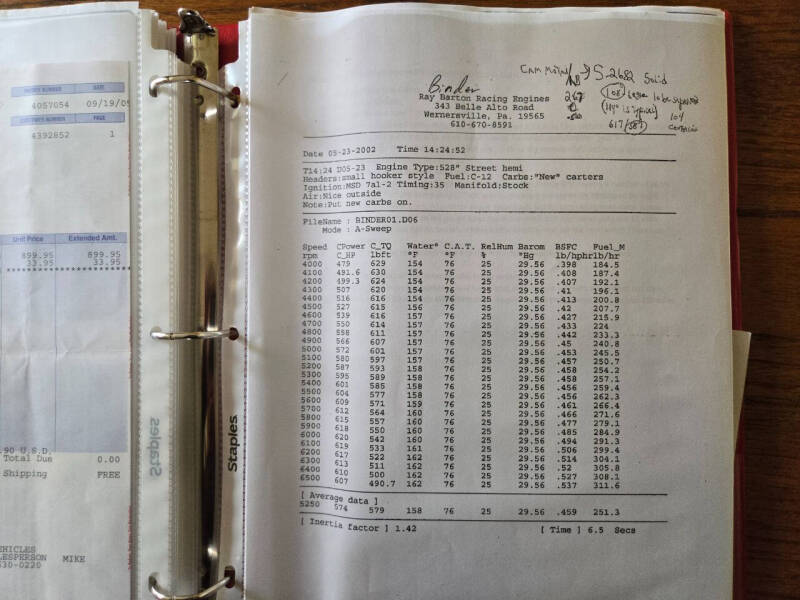 NUMBER DATE
4057054 09/19/05
PAGE
4392852 1
Unit Price Extended Amt.
899.95 899.95
33.95 33.95
.90 U.S.D.
Total Due 0.00
Shipping FREE
EHICLES
LESPERSON MIKE
530-0220
Staples
Staples
Binder
Cam S-2682 Solid
267
108
104
617/587
Ray Barton Racing Engines
343 Belle Alto Road
Wernersville, Pa. 19565
610-670-8591
Date 05-23-2002 Time 14:24:52
T14:24 D05-23 Engine Type:528" Street hemi
Headers:small hooker style Fuel:C-12 Carbs:"New" carters
Ignition:MSD 7al-2 Timing:35 Manifold:Stock
Air:Nice outside
Note:Put new carbs on.
FileName : BINDER01.D06
Mode : A-Sweep
Speed CPower C_TQ Water° C.A.T. RelHum Barom BSFC Fuel_M
rpm C_HP lbft °F °F % "Hg lb/hphr lb/hr
4000 479 629 154 76 25 29.56 .398 184.5
4100 491.6 630 154 76 25 29.56 .408 187.4
4200 499.3 624 154 76 25 29.56 .407 192.1
4300 507 620 154 76 25 29.56 .41 196.1
4400 516 616 154 76 25 29.56 .413 200.8
4500 527 615 156 76 25 29.56 .42 207.7
4600 539 616 157 76 25 29.56 .427 215.9
4700 550 614 157 76 25 29.56 .433 224
4800 558 611 157 76 25 29.56 .442 233.3
4900 566 607 157 76 25 29.56 .45 240.8
5000 572 601 157 76 25 29.56 .453 245.5
5100 580 597 157 76 25 29.56 .457 250.7
5200 587 593 158 76 25 29.56 .458 254.2
5300 595 589 158 76 25 29.56 .458 257.1
5400 601 585 158 76 25 29.56 .456 259.4
5500 604 577 158 76 25 29.56 .456 262.3
5600 609 571 159 76 25 29.56 .461 266.4
5700 612 564 160 76 25 29.56 .466 271.6
5800 615 557 160 76 25 29.56 .477 279.1
5900 618 550 160 76 25 29.56 .485 284.9
6000 620 542 160 76 25 29.56 .494 291.3
6100 619 533 161 76 25 29.56 .506 299.4
6200 617 522 162 76 25 29.56 .514 304.1
6300 613 511 162 76 25 29.56 .52 305.8
6400 610 500 162 76 25 29.56 .527 308.1
6500 607 490.7 162 76 25 29.56 .537 311.6
[ Average data ]
5250 574 579 158 76 25 29.56 .459 251.3
[ Inertia factor ] 1.42 [ Time ] 6.5 Secs